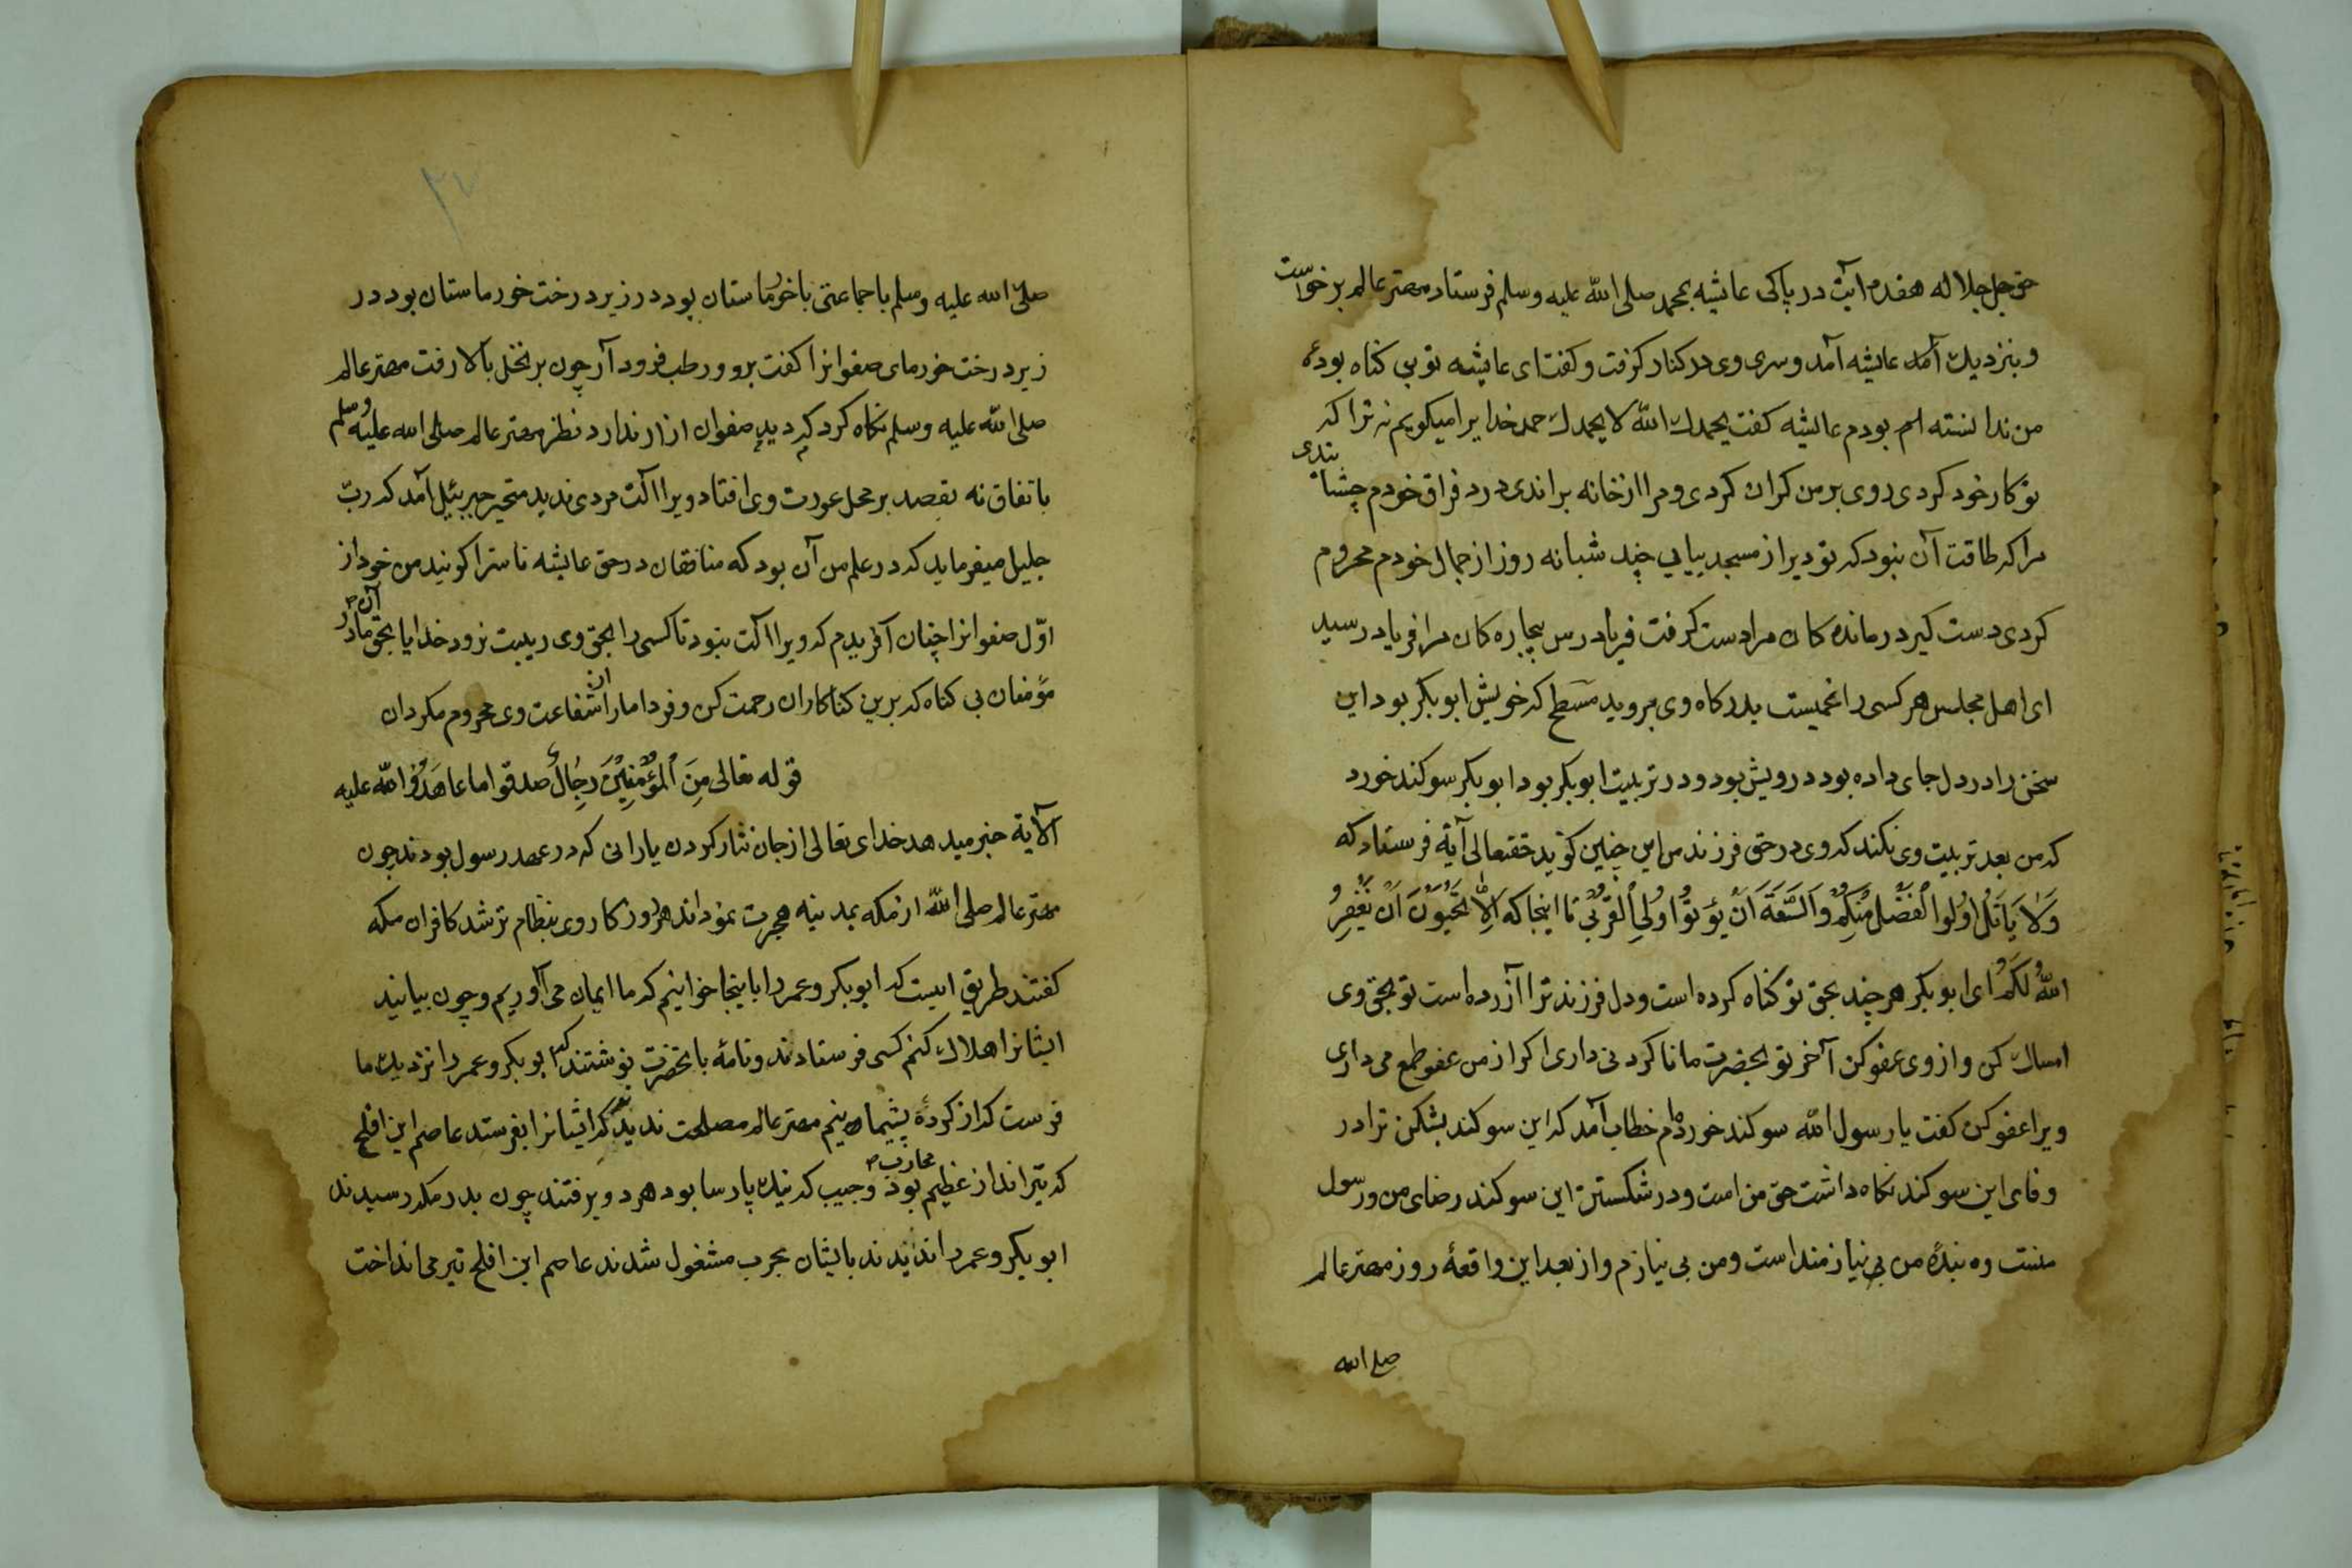 حق جل جلاله هفدم آیت در پاکی عایشه بمحمد صلی الله علیه وسلم فرستاد مهتر عالم برخواست
و بنزدیك آمد عایشه آمد و سری وی در کنار کرفت و کفت ای عایشه تو بی کناه بودهٔ
من ندانسته ام بودم عایشه کفت یحمدك الله لا یحمدك حمد خدایرا میکویم نه ترا که
تو کار خود کردی روی بر من کران کردی و مرا از خانه براندی درد فراق خودم چشانندی
مرا که طاقت آن نبود که تو دیر از مسجد بیایی چند شبانه روز از جمال خودم محروم
کردی دست کیر درمانده کان مرا دست کرفت فریادرس بیچاره کان مرا فریاد رسید
ای اهل مجلس هر کسی را غمیست بدرکاه وی بروید مسطح که خویش ابو بکر بود این
سخن را در دل جای داده بود درویش بود و در تربیت ابو بکر بود ابو بکر سوکند خورد
که من بعد تربیت وی نکند که وی در حق فرزند من این چنین کوید حقتعالی آیة فرستاد که
وَلاَ یَاتَلِ اُولُوا الْفَضْلِ مِنْکُمْ وَالسَّعَةَ اَنْ یُؤتُوا اُولِی الْقُرْبی تا اینجا که اَلاَ تُحِبُّونَ اَنْ یَغْفِرُ
اللّهُ لَکُمْ ای ابو بکر هر چند بحق تو کناه کرده است و دل فرزند ترا آزرده است تو بحق وی
امساك کن و از وی عفو کن آخر تو بحضرت ما نا کردنی داری اکر از من عفو طمع می داری
ویرا عفو کن کفت یا رسول الله سوکند خورده ام خطاب آمد که این سوکند بشکن ترا در
وفای این سوکند نکاه داشت حق من است و در شکستن این سوکند رضای من و رسول
منست وه بندهٔ من بی نیازمند است و من بی نیازم و از بعد این واقعهٔ روز مهتر عالم
صلی الله
۳۷
صلی الله علیه وسلم با جماعتی با خرماستان بود در زیر درخت خورماستان بود در
زیر درخت خورمای صفوانرا کفت برو و رطب فرود آر چون بر نخل بالا رفت مهتر عالم
صلی الله علیه وسلم نکاه کرد که دید صفوان ازار ندارد نظر مهتر عالم صلی الله علیه وسلم
باتفاق نه بقصد بر محل عورت وی افتاد ویرا آلت مردی ندید متحیر جبرئیل آمد که رب
جلیل میفرماید که در علم من آن بود که منافقان در حق عایشه ناسزا کویند من خود از
اوّل صفوانرا چنان آفریدم که ویرا آلت نبود تا کسی را بحق وی ریبت نرود خدایا بحق آن مادر
مؤمنان بی کناه که برین کناکاران رحمت کن و فردا مارا از شفاعت وی محروم مکردان
قوله تعالی مِنَ الْمُؤْمِنِیْنَ رِجَالٌ صدقوا ما عاهَدُوا الله علیه
الآیة خبر میدهد خدای تعالی از جان نثار کردن یارانی که در عهد رسول بودند چون
مهتر عالم صلی الله از مکه بمدینه هجرت نمود اند هر روز کار وی بنظام تر شد کافران مکه
کفتند طریق ایست که ابو بکر و عمر را باینجا خوانیم که ما ایمان می آوریم و چون بیایند
ایشانرا هلاك کنم کسی فرستادند و نامهٔ با تحضرت نوشتند که ابو بکر و عمر را نزدیك ما
فرست که از کردهٔ پشیمانیم مهتر عالم مصلحت ندید که ایشانرا بفرستد عاصم ابن افلح
که تیر انداز عظیم بود محارب و حبیب که نیك پارسا بود هر دو برفتند چون بدر مکه رسیدند
ابو بکر و عمر را ندیدند بایشان بحرب مشغول شدند عاصم ابن افلح تیر می انداخت